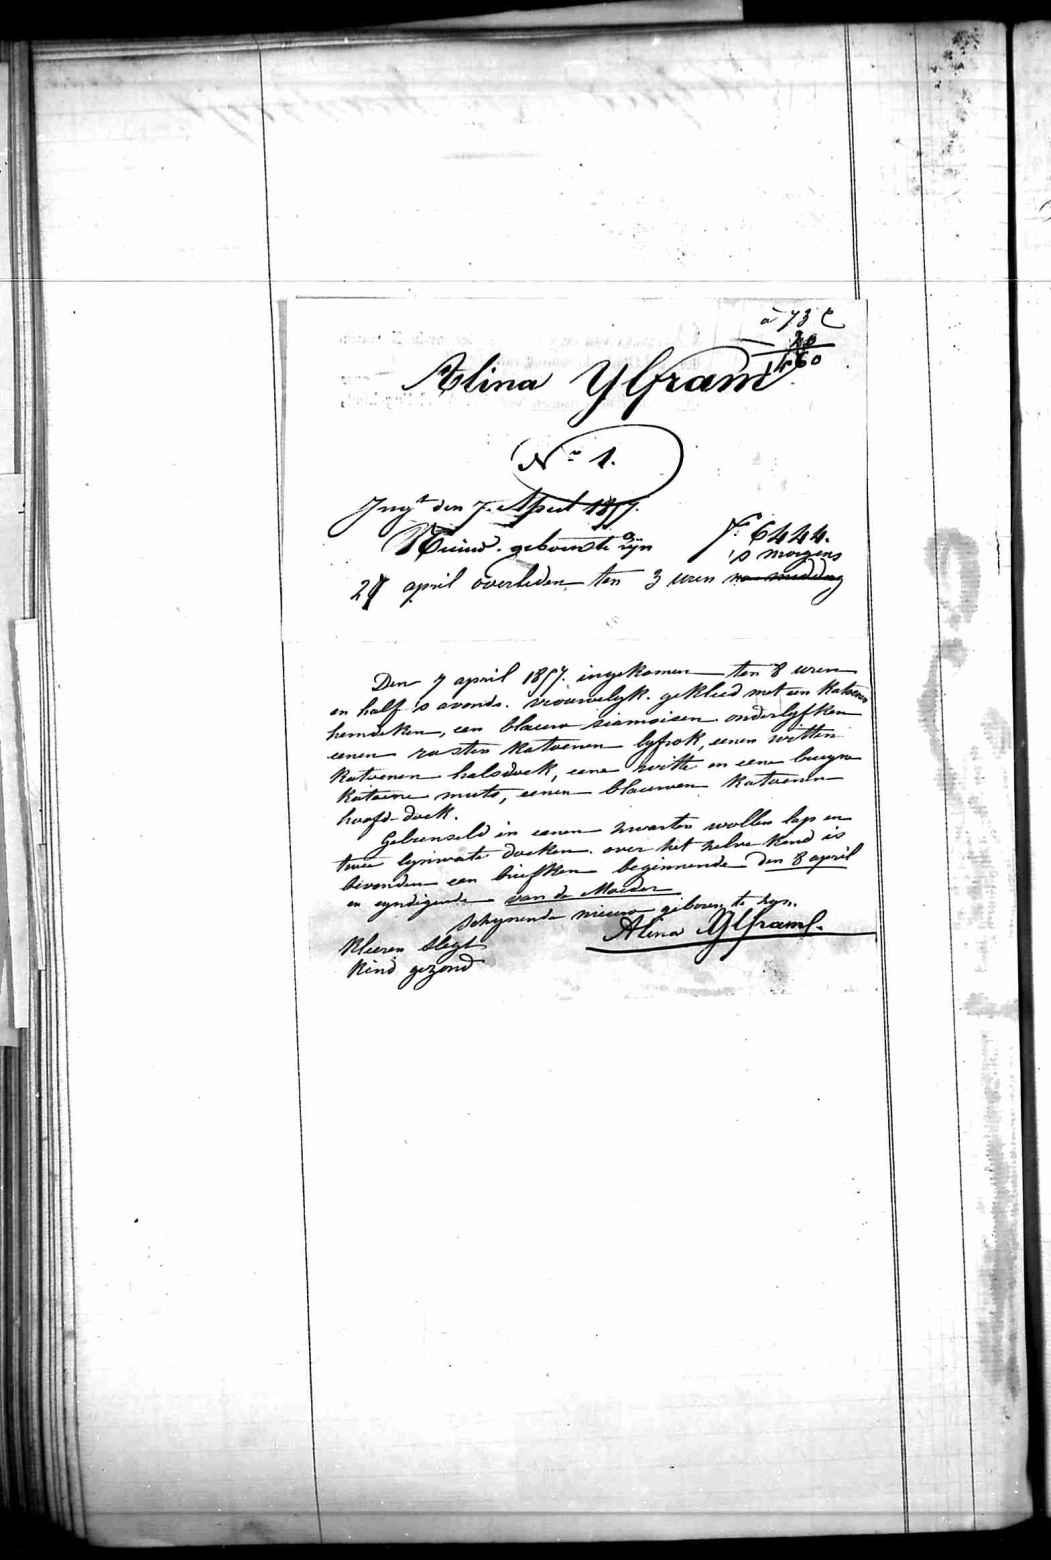 à 73 C
20
14 60
Alina Ylfram
No 1.
Ingt den 7. April 1857.
Nieuw. geboorste zijn
F° 6444.
's morgens
27 april overleden ten 3 uren na middag
Den 7 april 1857. ingekomen ten 8 uren
en half 's avonds. vrouwelyk. gekleed met een katoenen
hemdeken, een blauw siamoisen onderlyfken
eenen rosten katoenen lyfrok, eenen witten
katoenen halsdoek, eene witte en eene bruyne
katoene muts, eenen blauwen katoenen
hoofd-doek.
Gebunseld in eenen zwarten wollen lap en
twee lynwate doeken. over het zelve kind is
bevonden een briefken beginnende den 8 april
en eyndigende van de Moeder
schynende nieuw geboren te zyn.
Kleeren slegt
Kind gezond
Alina Ylfram.